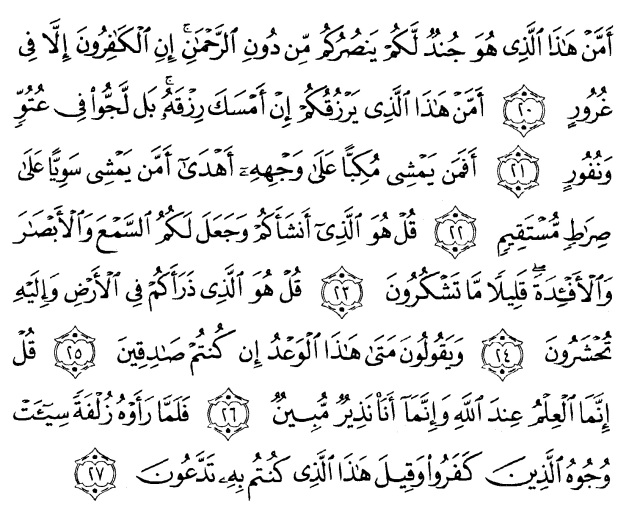 أَمَّنْ هَٰذَا الَّذِى هُوَ جُندٌ لَّكُمْ يَنصُرُكُم مِّن دُونِ الرَّحْمَٰنِ ۚ إِنِ الْكَٰفِرُونَ إِلَّا فِى
غُرُورٍ ﴿٢٠﴾ أَمَّنْ هَٰذَا الَّذِى يَرْزُقُكُمْ إِنْ أَمْسَكَ رِزْقَهُۥ ۚ بَل لَّجُّوا۟ فِى عُتُوٍّ
وَنُفُورٍ ﴿٢١﴾ أَفَمَن يَمْشِى مُكِبًّا عَلَىٰ وَجْهِهِۦٓ أَهْدَىٰٓ أَمَّن يَمْشِى سَوِيًّا عَلَىٰ
صِرَٰطٍ مُّسْتَقِيمٍ ﴿٢٢﴾ قُلْ هُوَ الَّذِىٓ أَنشَأَكُمْ وَجَعَلَ لَكُمُ السَّمْعَ وَالْأَبْصَٰرَ
وَالْأَفْـِٔدَةَ ۖ قَلِيلًا مَّا تَشْكُرُونَ ﴿٢٣﴾ قُلْ هُوَ الَّذِى ذَرَأَكُمْ فِى الْأَرْضِ وَإِلَيْهِ
تُحْشَرُونَ ﴿٢٤﴾ وَيَقُولُونَ مَتَىٰ هَٰذَا الْوَعْدُ إِن كُنتُمْ صَٰدِقِينَ ﴿٢٥﴾ قُلْ
إِنَّمَا الْعِلْمُ عِندَ اللَّهِ وَإِنَّمَآ أَنَا۠ نَذِيرٌ مُّبِينٌ ﴿٢٦﴾ فَلَمَّا رَأَوْهُ زُلْفَةً سِيٓـَٔتْ
وُجُوهُ الَّذِينَ كَفَرُوا۟ وَقِيلَ هَٰذَا الَّذِى كُنتُم بِهِۦ تَدَّعُونَ ﴿٢٧﴾